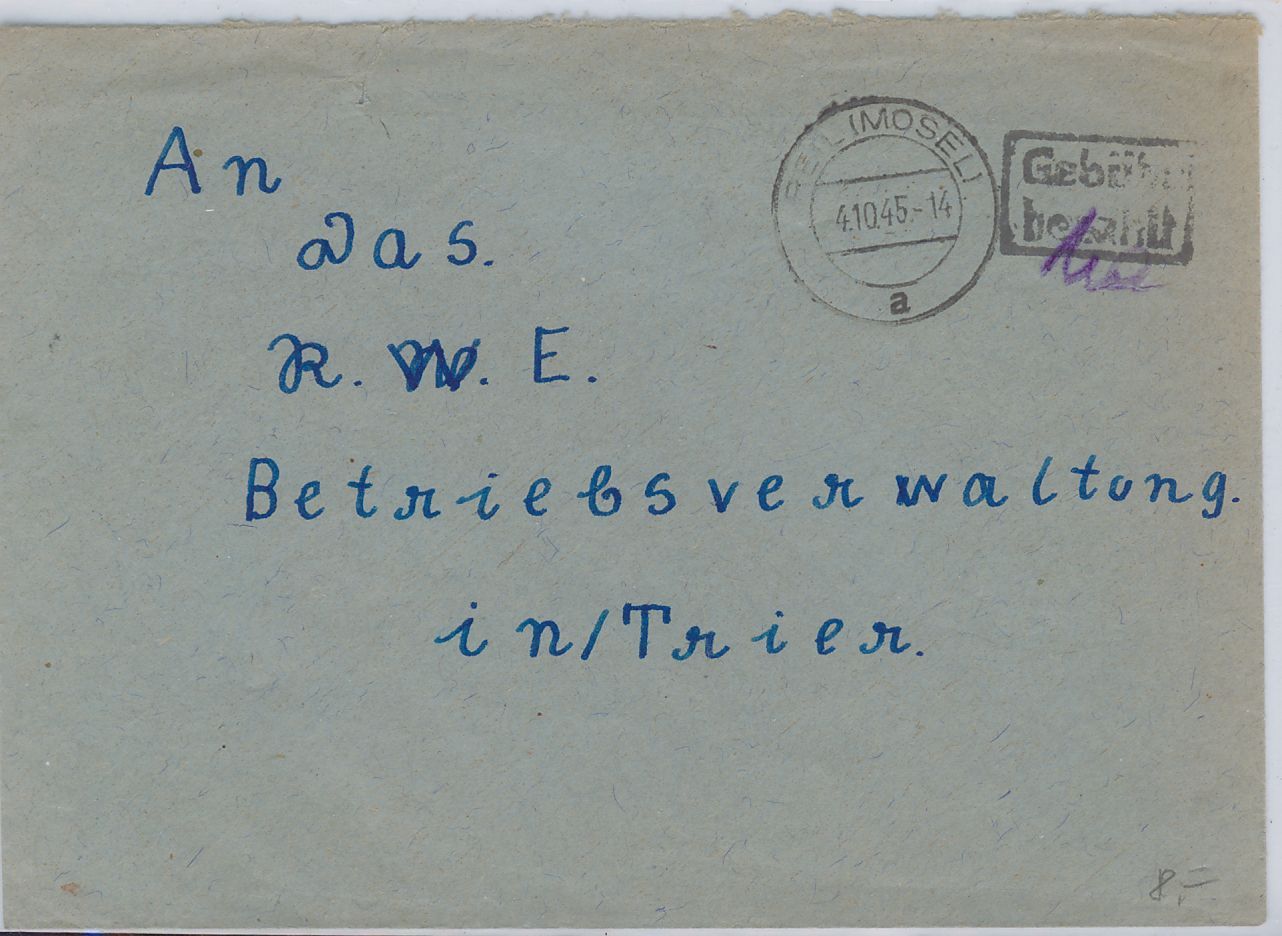 An
Das.
R. W. E.
Betriebsverwaltung.
in/Trier.
REIL (MOSEL)
4.10.45.-14
a
Gebühr
bezahlt
8,-